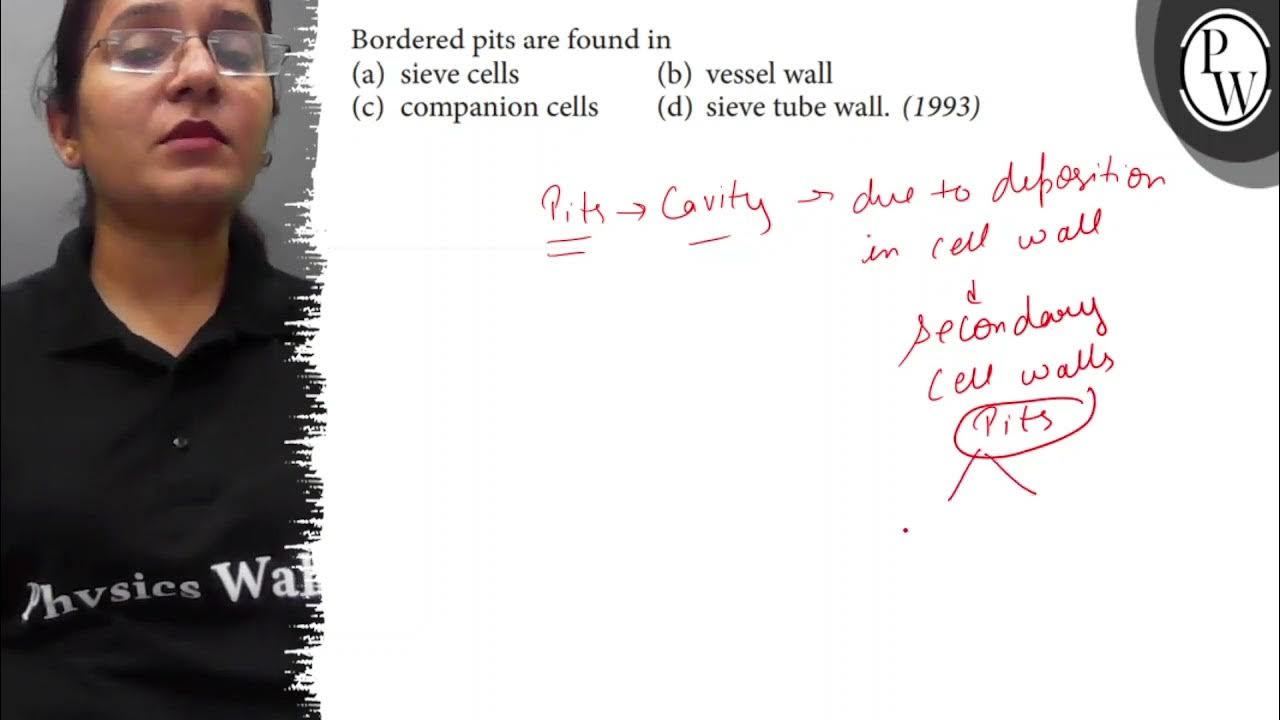 Bordered pits are found in
(a) sieve cells (b) vessel wall
(c) companion cells (d) sieve tube wall. (1993)
PW
Pits → Cavity → due to deposition
in cell wall
↓
secondary
cell walls
Pits
Physics Wal